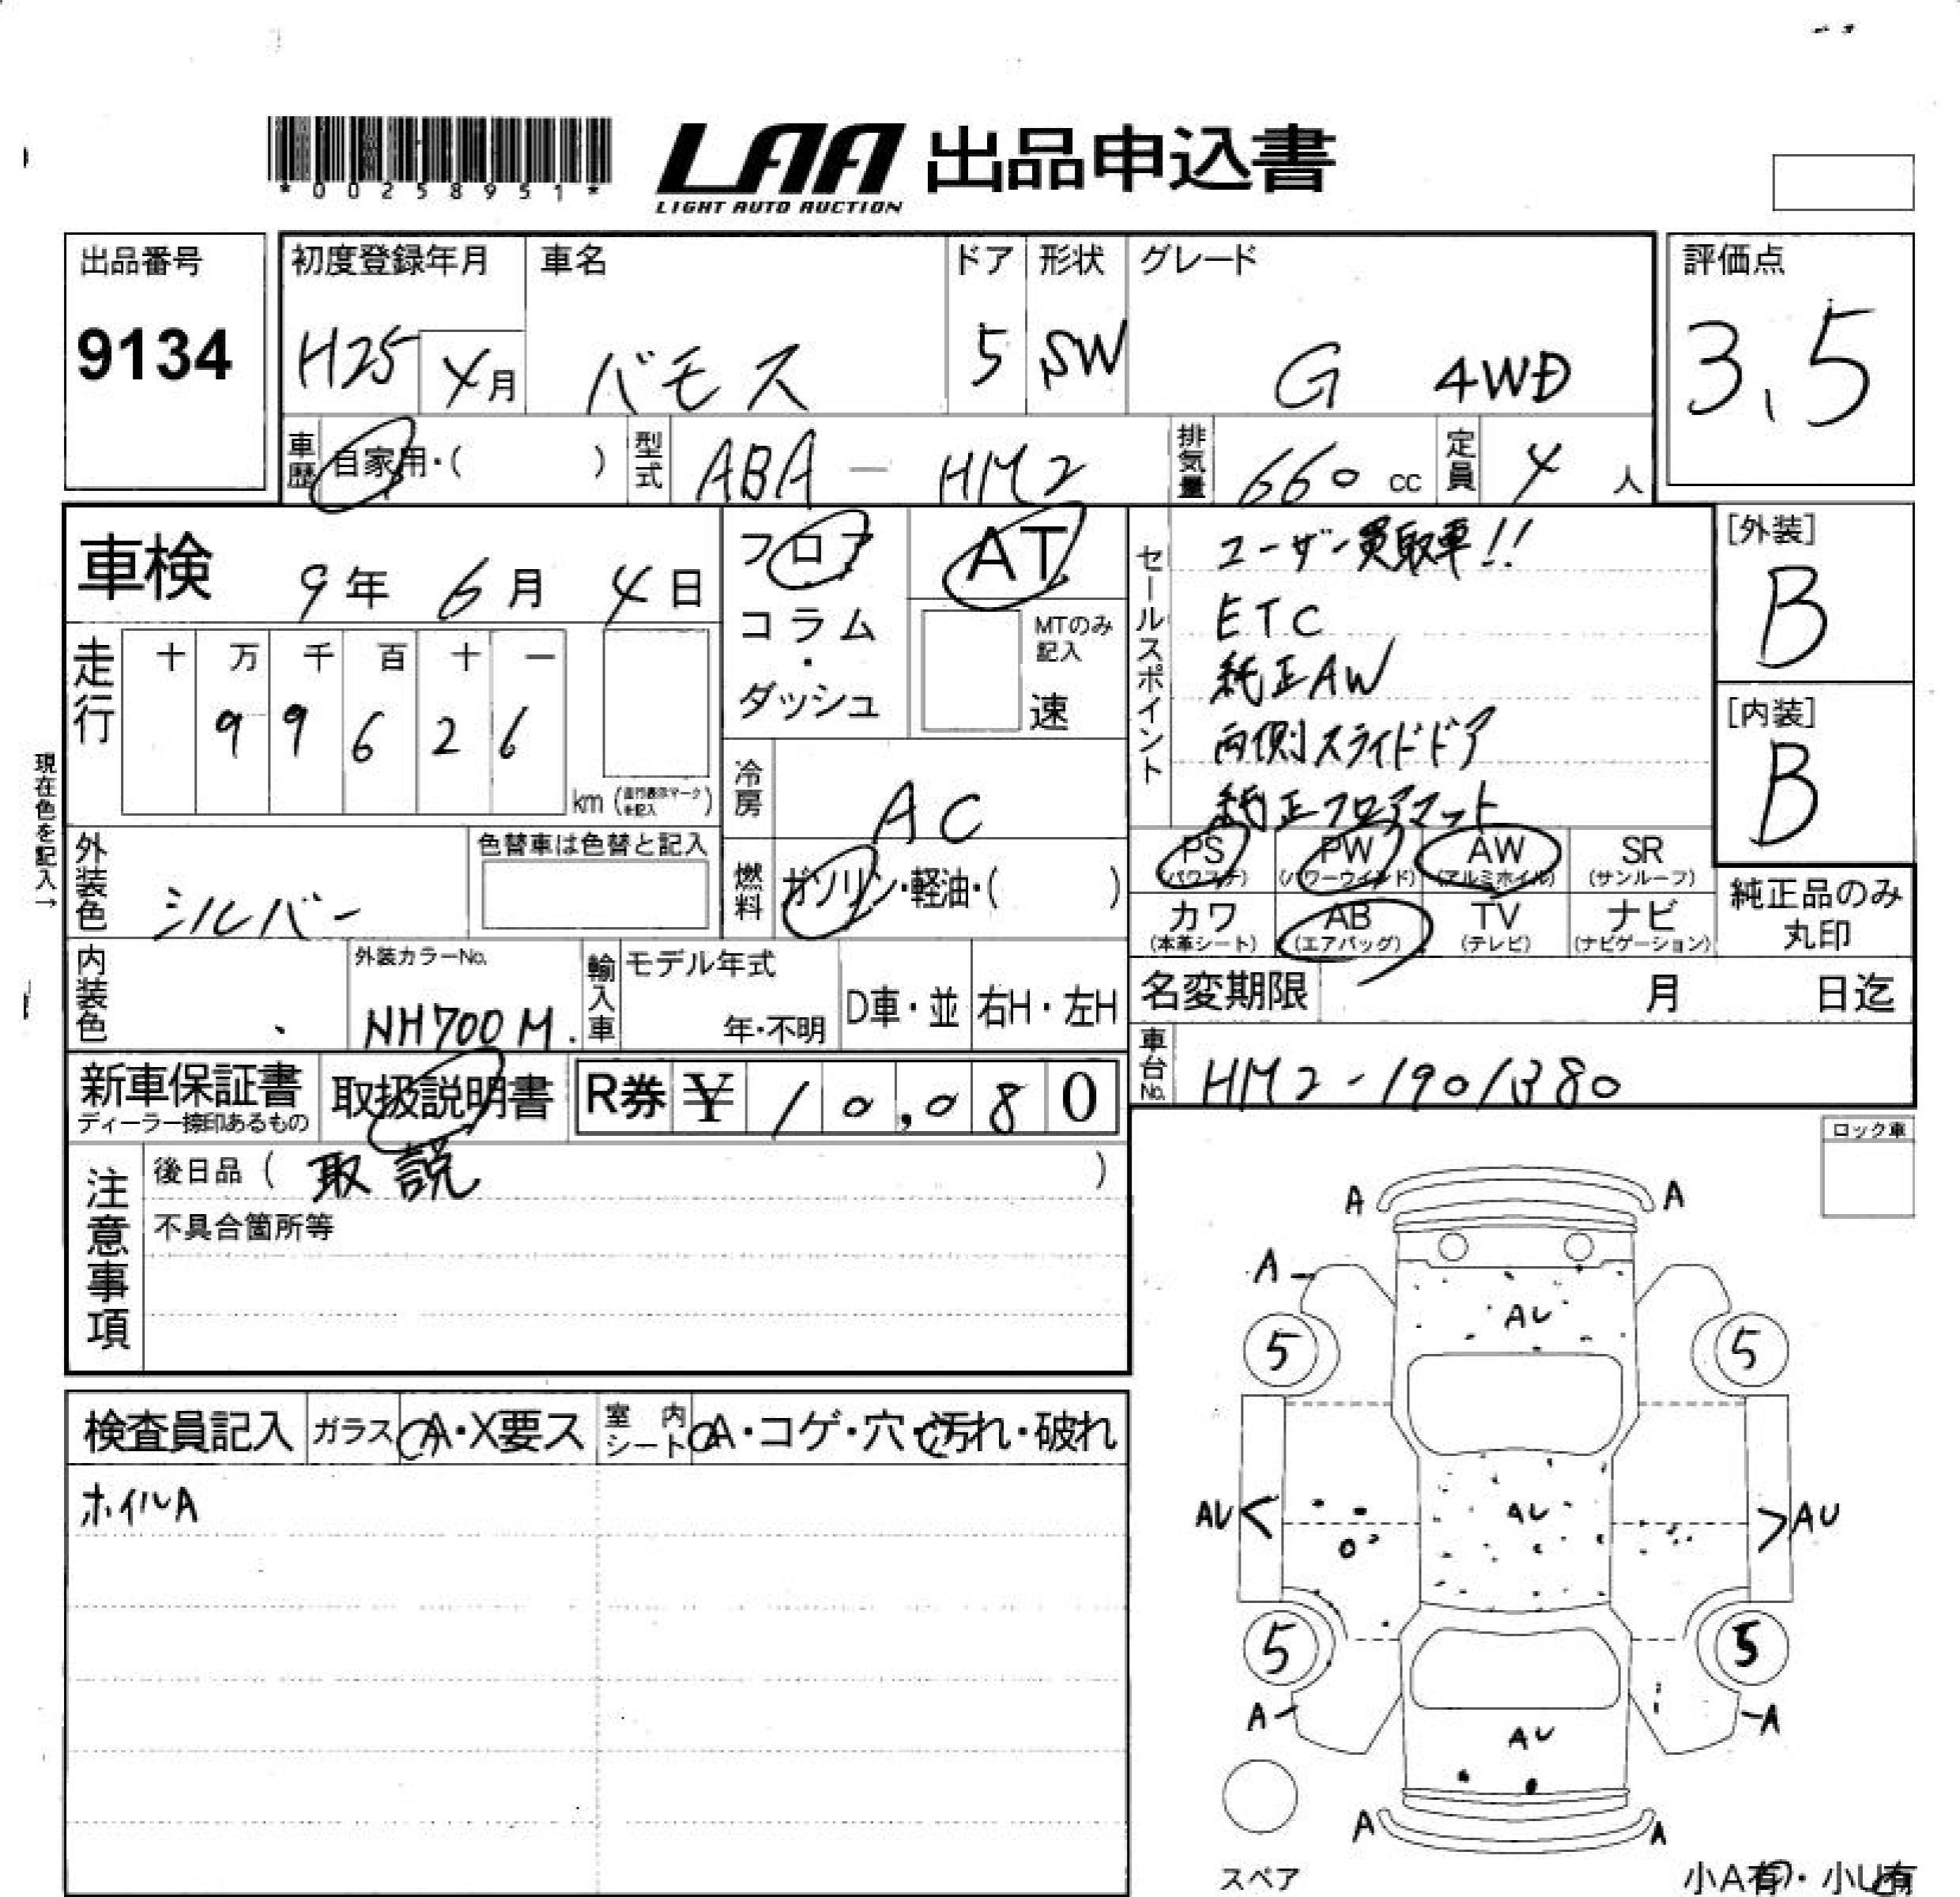 *00258951*
LAA 出品申込書
LIGHT AUTO AUCTION
出品番号
9134
初度登録年月
H25 4月
車名
バモス
ドア
5
形状
SW
グレード
G 4WD
評価点
3.5
車歴 自家用・( )
型式 ABA - HM2
排気量 660 cc
定員 4 人
車検 9年 6月 4日
フロア
コラム
・
ダッシュ
AT
MTのみ
記入
速
セールスポイント
ユーザー買取車!!
ETC
純正AW
両側スライドドア
純正フロアマット
[外装]
B
[内装]
B
走行
十 万 千 百 十 一
9 9 6 2 6
km
現在色を記入→
冷房 AC
外装色 シルバー
色替車は色替と記入
燃料 ガソリン・軽油・( )
PS
(パワステ)
PW
(パワーウインド)
AW
(アルミホイル)
SR
(サンルーフ)
カワ
(本革シート)
AB
(エアバッグ)
TV
(テレビ)
ナビ
(ナビゲーション)
純正品のみ
丸印
内装色
外装カラーNo.
NH700M
輸入車
モデル年式
年・不明
D車・並
右H・左H
名変期限 月 日迄
車台No. HM2-1901380
新車保証書
ディーラー捺印あるもの
取扱説明書
R券 ¥ 10,080
注意事項
後日品 ( 取説 )
不具合箇所等
ロック車
検査員記入
ガラス A・X要ス
室内シート A・コゲ・穴・汚れ・破れ
ホイルA
A A
A
AU
5 5
AU AU AU
5 5
A A
AU
A A
スペア
小A有・小U有